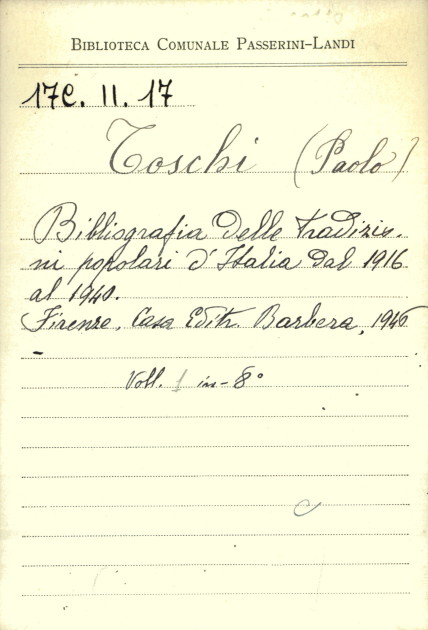 BIBLIOTECA COMUNALE PASSERINI-LANDI
17C. II. 17
Toschi (Paolo)
Bibliografia delle tradizio-
ni popolari d'Italia dal 1916
al 1940.
Firenze, Casa Editr. Barbera, 1946
-
Voll. 1 in-8°
C